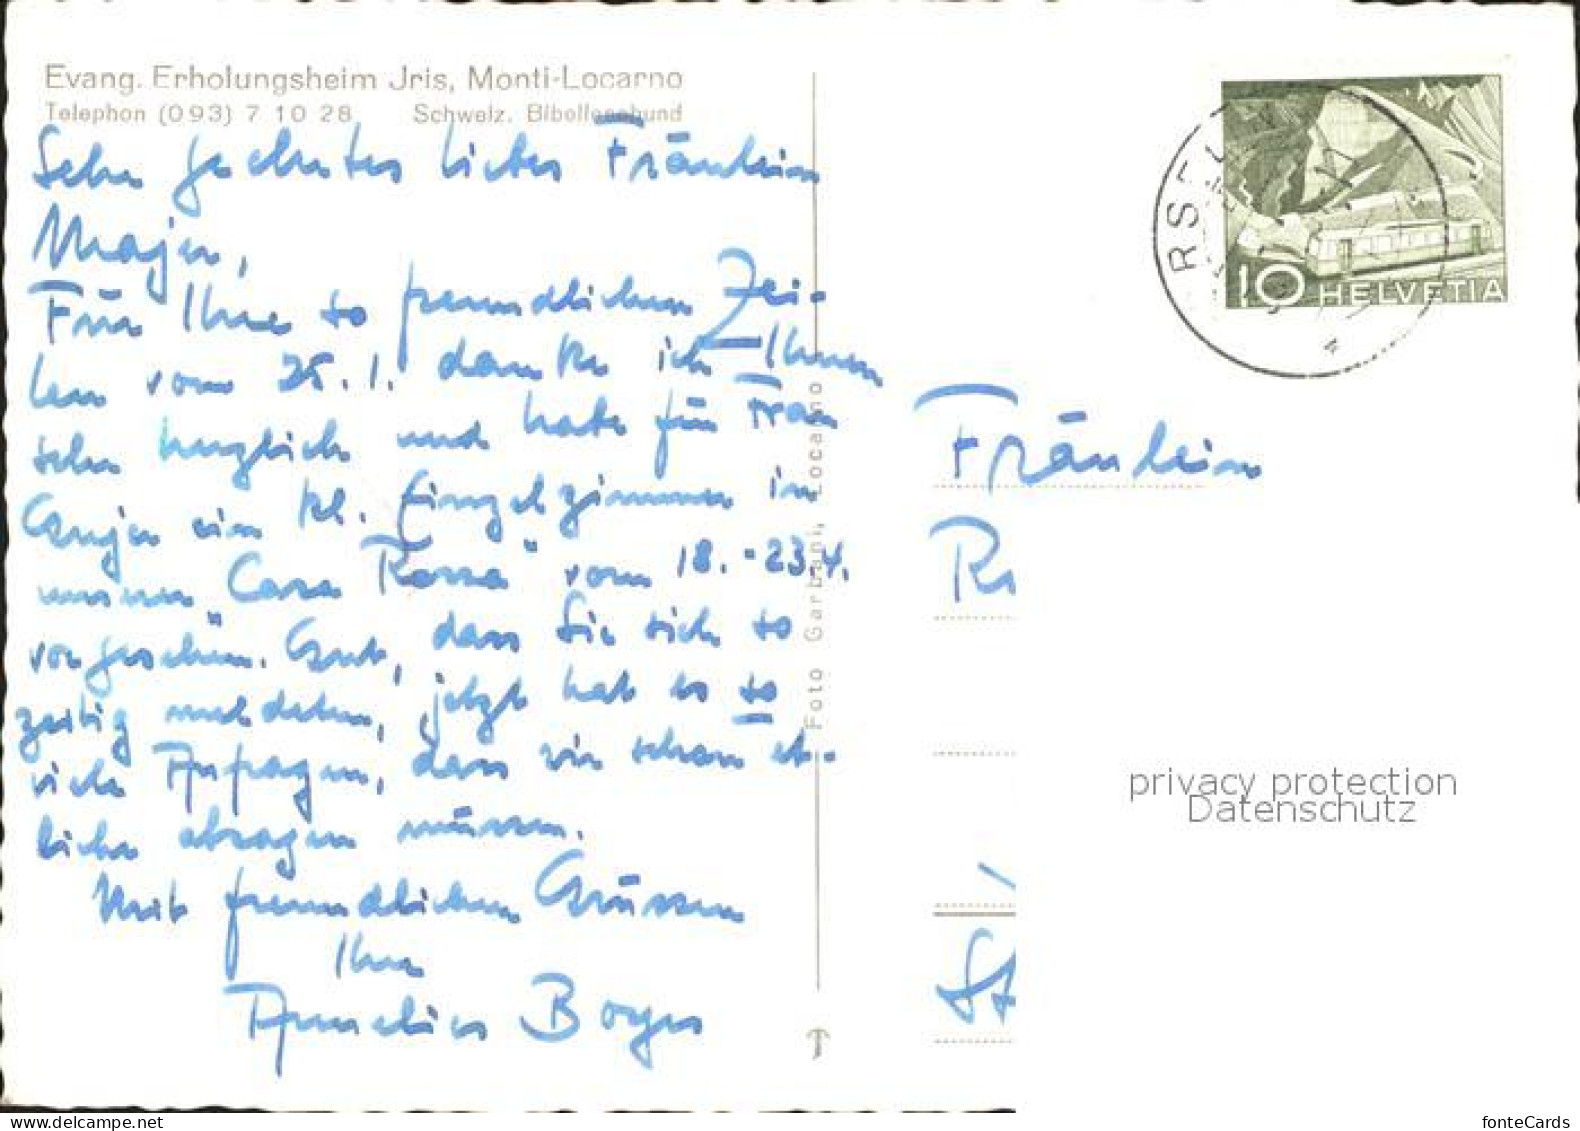 Evang. Erholungsheim Jris, Monti-Locarno
Telephon (093) 7 10 28 Schweiz. Bibellesebund
Sehr geehrtes liebes Fräulein
Majer,
Für Ihre so freundlichen Zei-
len vom 25.1. danke ich Ihnen
sehr herzlich und habe für Frau
ein kl. Einzelzimmer in
unserer "Casa Rossa" vom 18.-23.4.
vorgesehen. Gut, dass Sie sich so
zeitig meldeten, jetzt hat es so
viele Anfragen, dass wir schon et-
liche absagen müssen.
Mit freundlichen Grüssen
Ihre
Foto Garbani, Locarno
10 HELVETIA
Fräulein
St
privacy protection
Datenschutz
www.delcampe.net
fonteCards